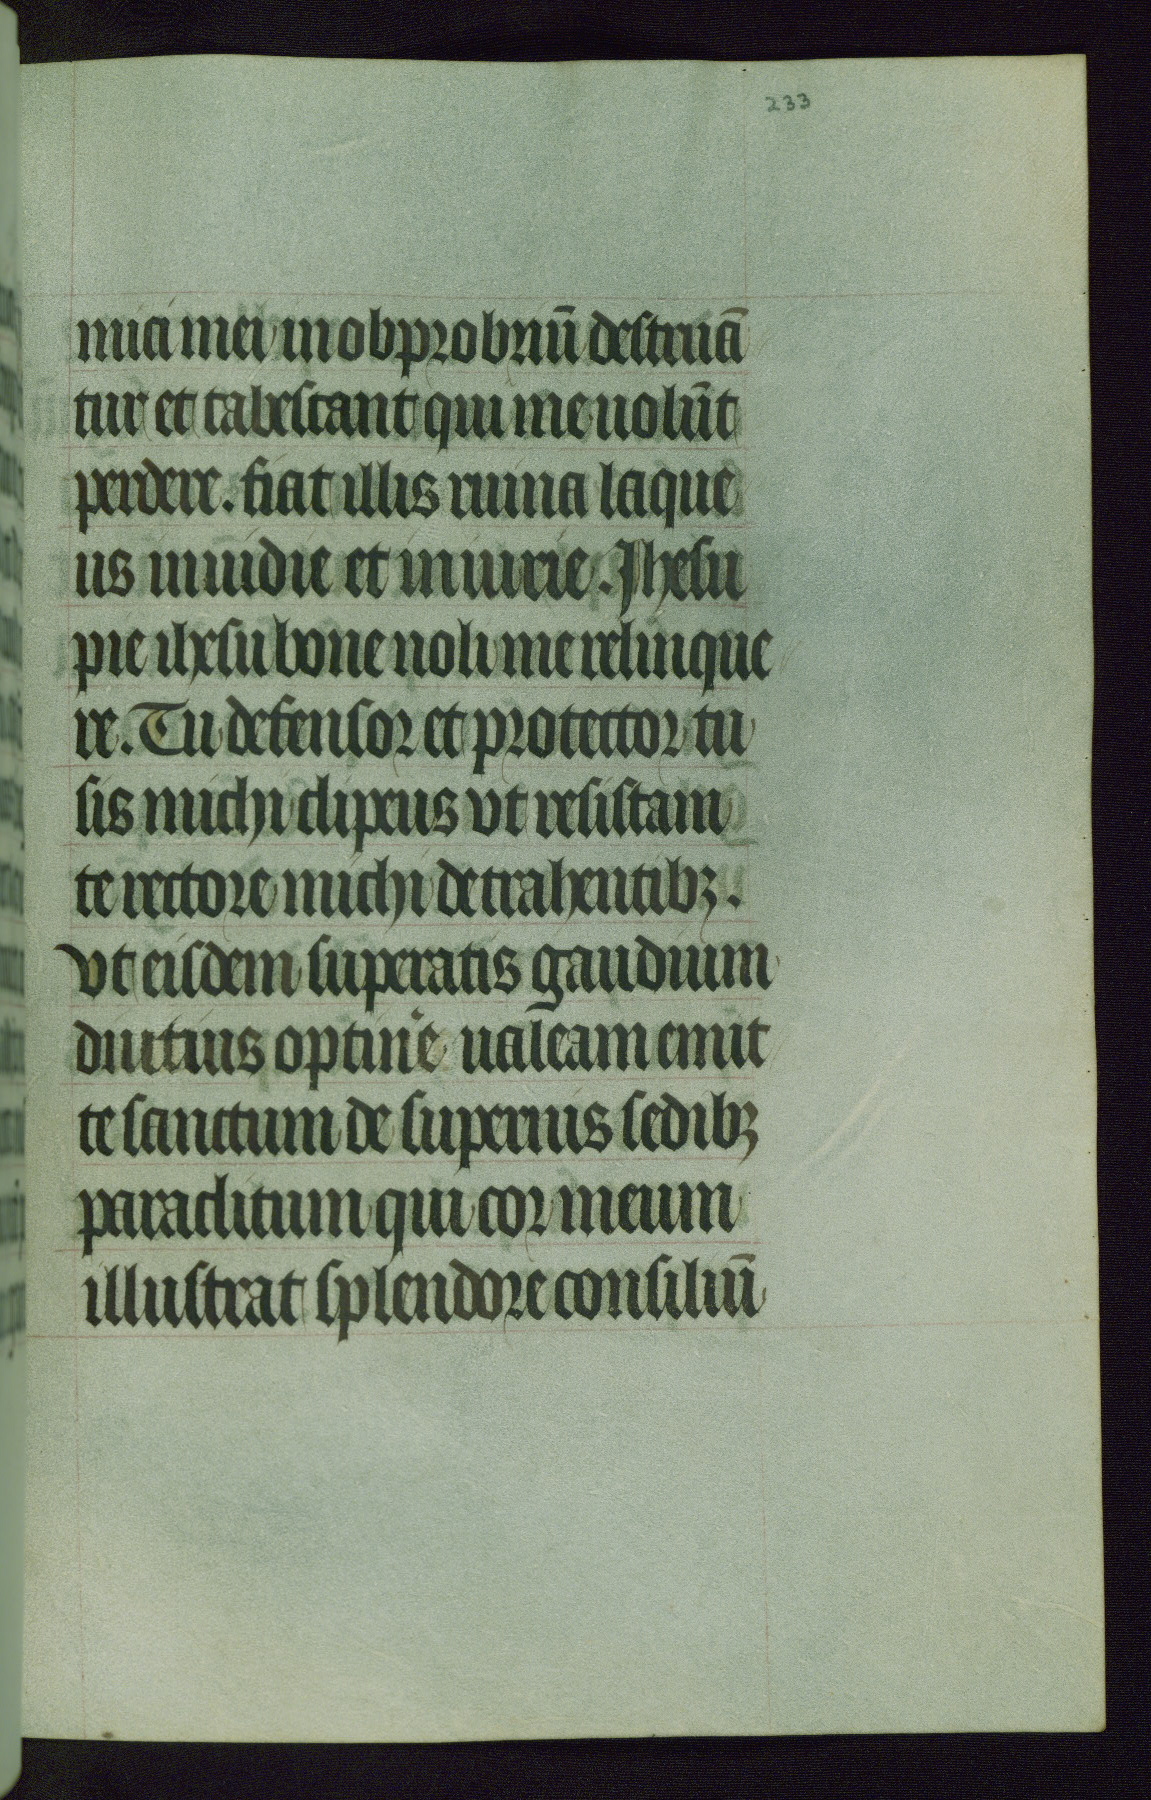 233
mici mei in obprobriū destruā
tur et tabescant qui me uolūt
perdere. fiat illis ruina laque
us inuidie et iniurie. Jhesu
pie ihesu bone noli me relinque
re. Tu defensor et protector tu
sis michi clipeus vt resistam
te rectore michi detrahentibꝫ.
vt eisdem superatis gaudium
diutius optin̄e ualeam emit
te sanctum de supernis sedibꝫ
paraclitum qui cor meum
illustrat splendore consiliū